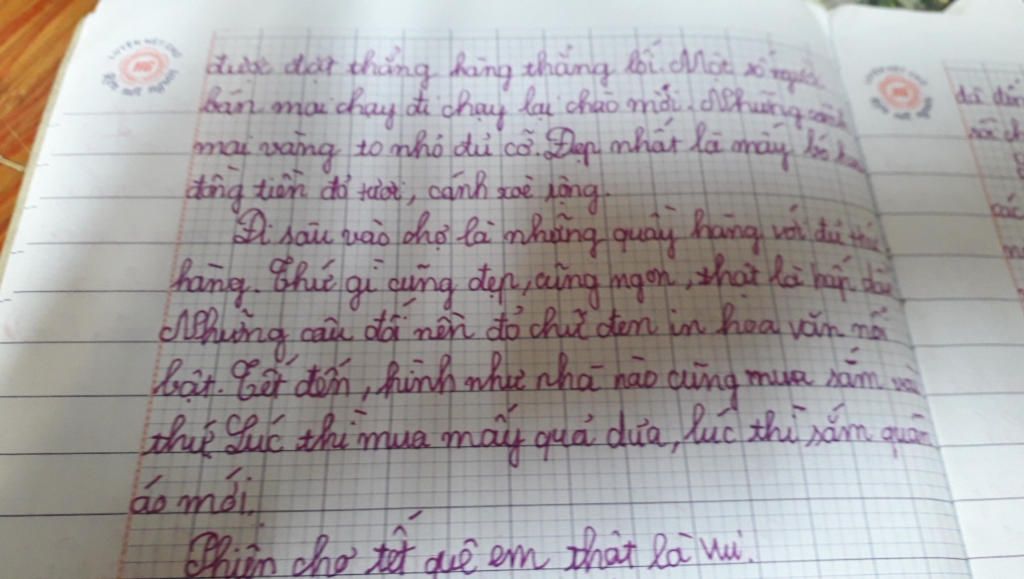 được đặt thẳng hàng thẳng lối. Một số người
bán mai chạy đi chạy lại chào mời. Những cành
mai vàng to nhỏ đủ cỡ. Đẹp nhất là mấy bó hoa
đồng tiền đỏ tươi, cánh xoè rộng.
Đi sâu vào chợ là những quầy hàng với đủ thứ
hàng. Thứ gì cũng đẹp, cũng ngon, thật là hấp dẫn
Những câu đối nền đỏ chữ đen in hoa văn nổi
bật. Tết đến, hình như nhà nào cũng mua sắm vài
thứ Lúc thì mua mấy quả dừa, lúc thì sắm quần
áo mới.
Phiên chợ tết quê em thật là vui.
các